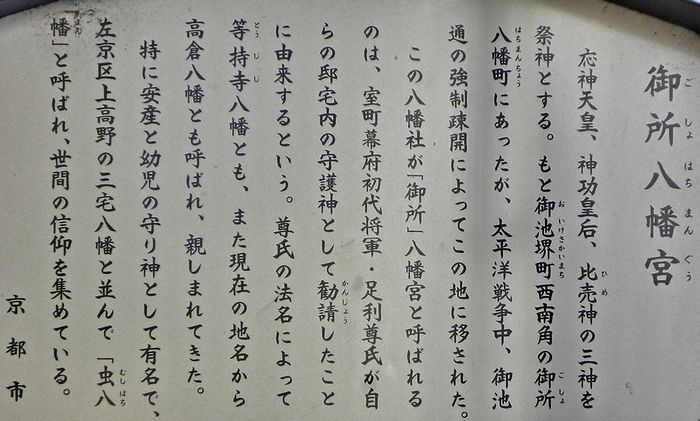 御所八幡宮
応神天皇、神功皇后、比売神の三神を
祭神とする。もと御池堺町西南角の御所
八幡町にあったが、太平洋戦争中、御池
通の強制疎開によってこの地に移された。
この八幡社が「御所」八幡宮と呼ばれる
のは、室町幕府初代将軍・足利尊氏が自
らの邸宅内の守護神として勧請したこと
に由来するという。尊氏の法名によって
等持寺八幡とも、また現在の地名から
高倉八幡とも呼ばれ、親しまれてきた。
特に安産と幼児の守り神として有名で、
左京区上高野の三宅八幡と並んで「虫八
幡」と呼ばれ、世間の信仰を集めている。
京都市